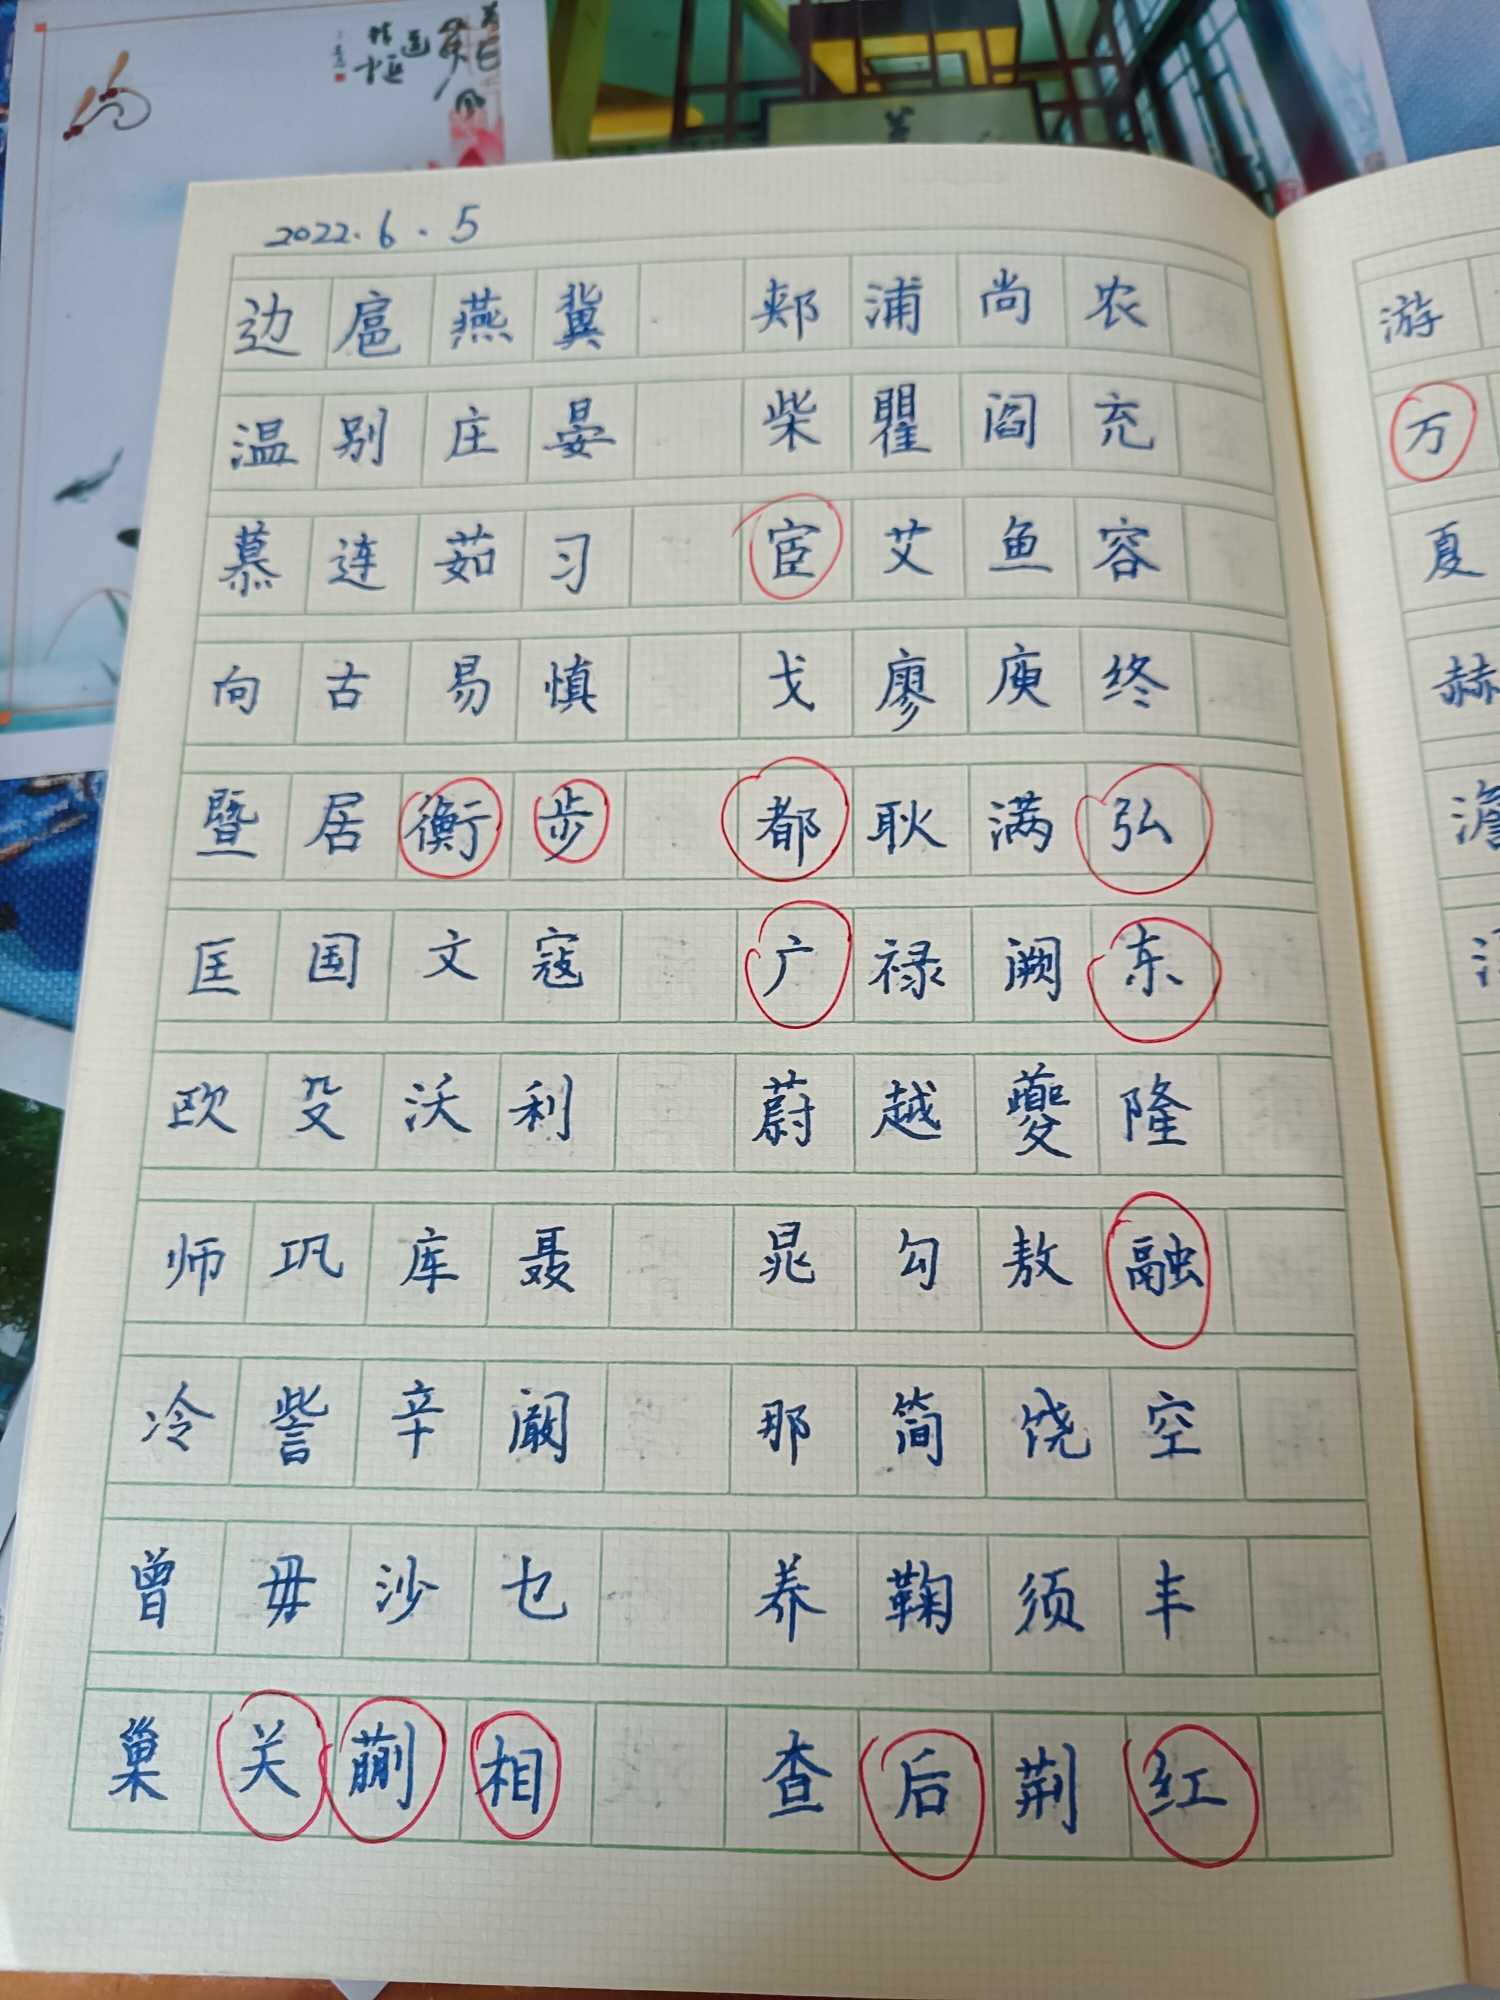 2022.6.5
边扈燕冀 郏浦尚农
温别庄晏 柴瞿阎充
慕连茹习 宦艾鱼容
向古易慎 戈廖庾终
暨居衡步 都耿满弘
匡国文寇 广禄阙东
欧殳沃利 蔚越夔隆
师巩厍聂 晁勾敖融
冷訾辛阚 那简饶空
曾毋沙乜 养鞠须丰
巢关蒯相 查后荆红
游
万
夏
赫
澹